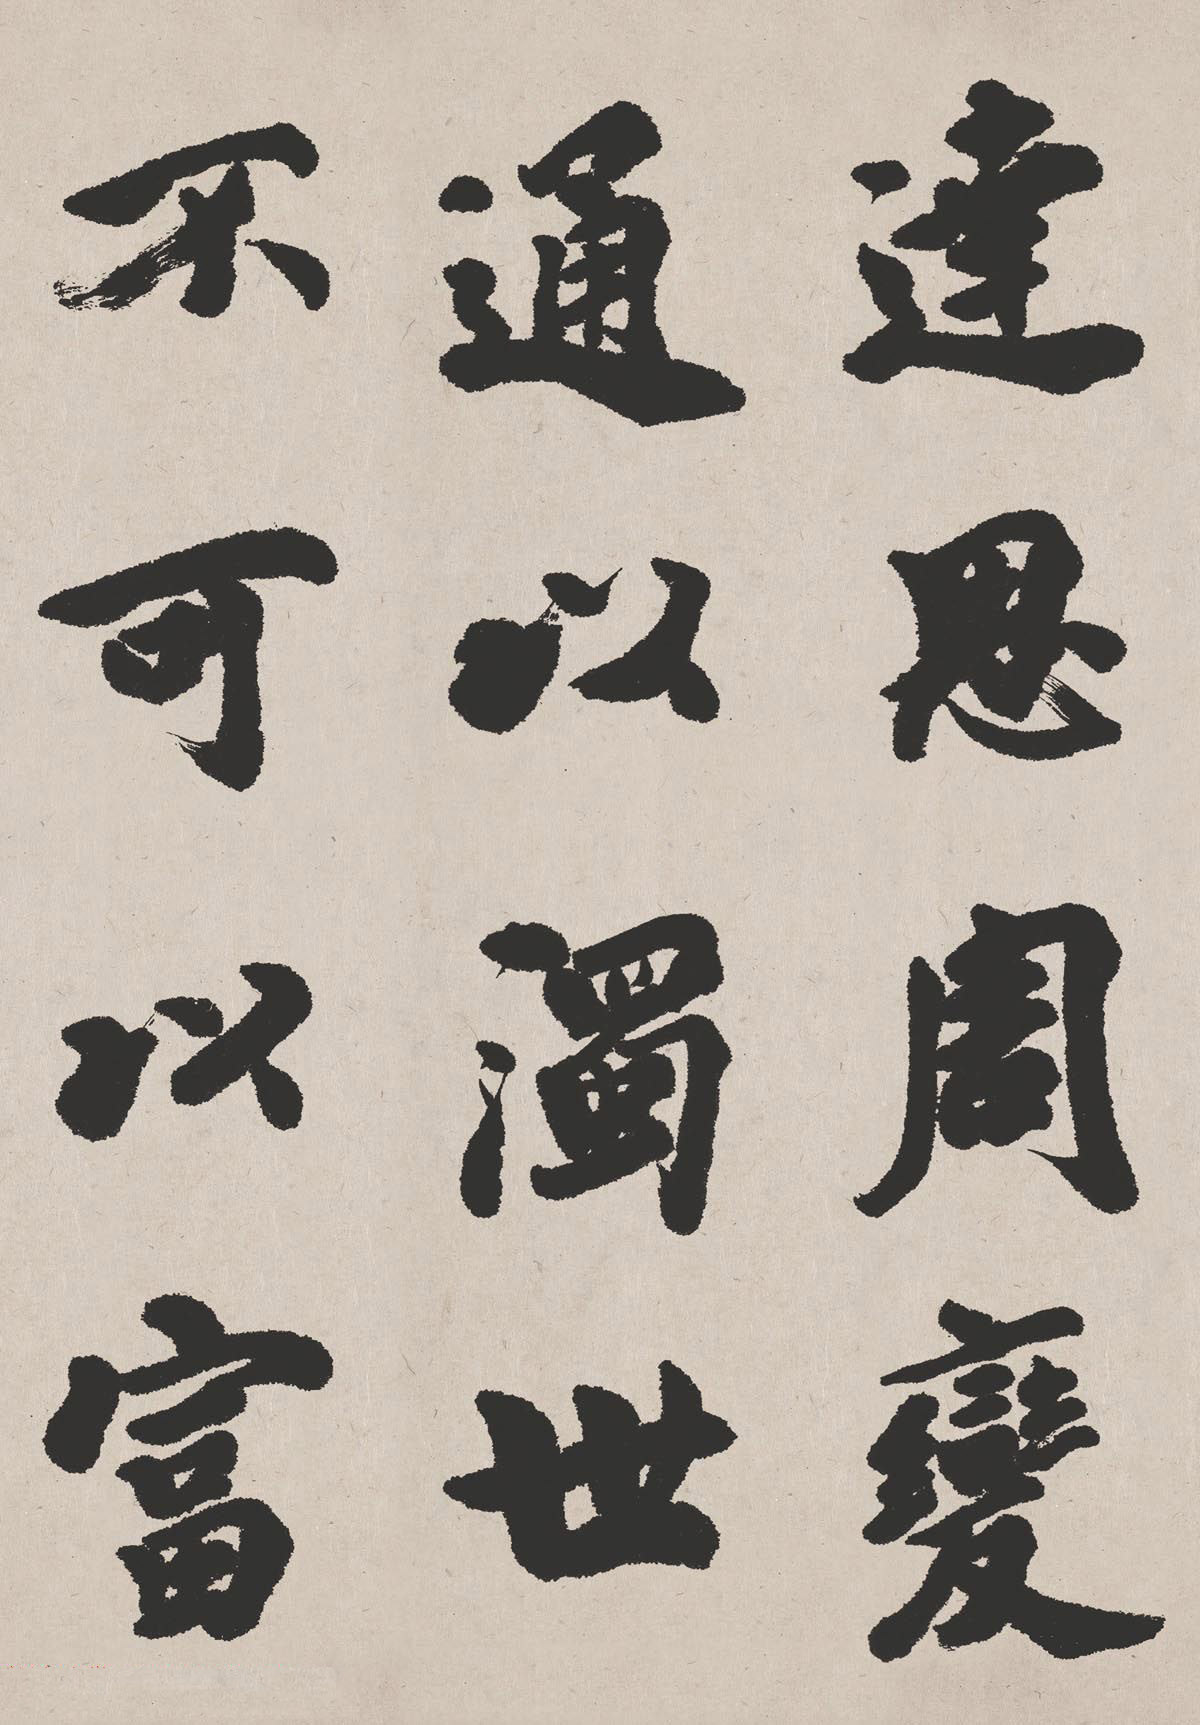 達思周變
通以濁世
不可以富